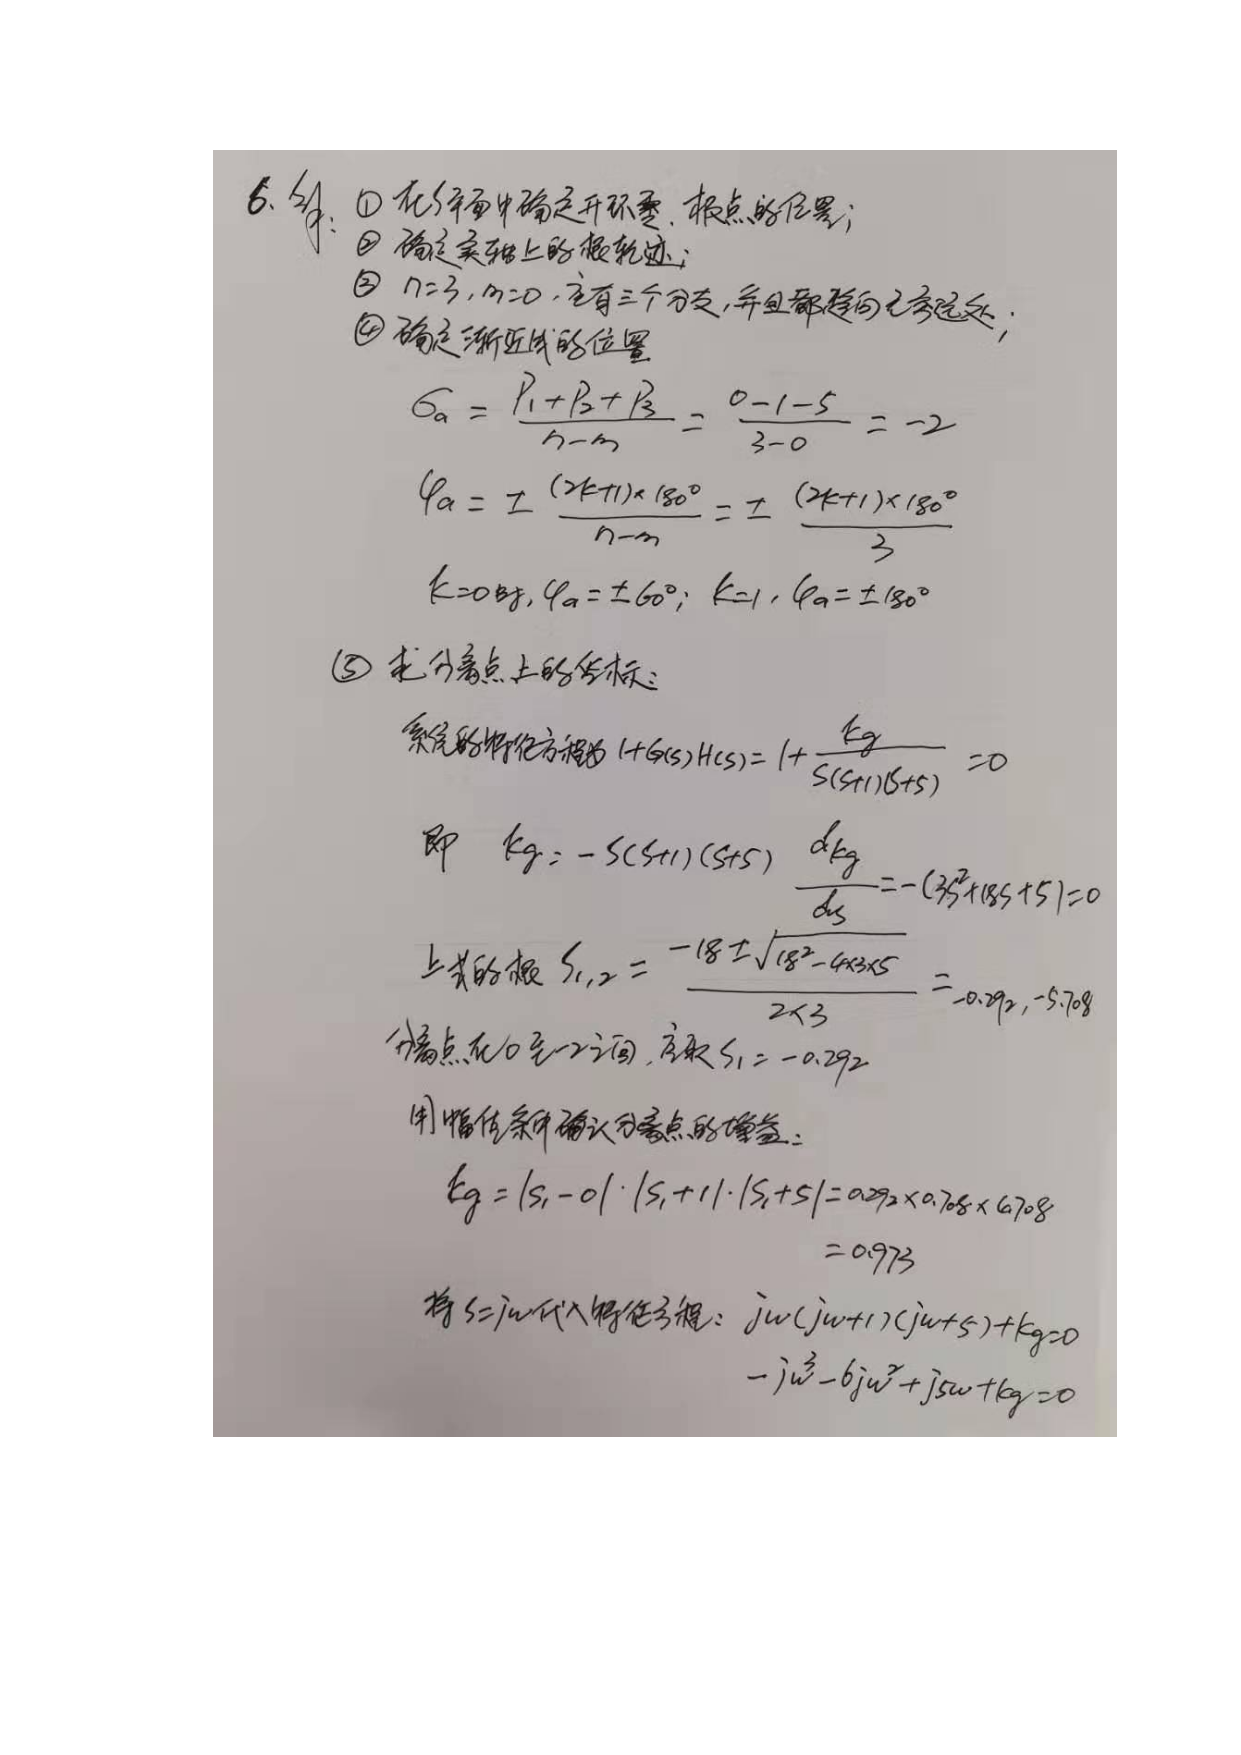 6. 解: ① 在S平面中确定开环零、极点的位置;
② 确定实轴上的根轨迹;
③ n=3, m=0, 应有三个分支, 并且都趋向无穷远处;
④ 确定渐近线的位置
σa = (P₁+P₂+P₃)/(n-m) = (0-1-5)/(3-0) = -2
φa = ± (2k+1)×180°/(n-m) = ± (2k+1)×180°/3
k=0时, φa=±60°; k=1, φa=±180°
⑤ 求分离点上的坐标:
系统的特征方程为 1+G(s)H(s)=1+ kg/(S(S+1)(S+5)) =0
即 kg=-S(S+1)(S+5) dkg/ds=-(3S²+18S+5)=0
上式的根 S₁,₂ = (-18±√(18²-4×3×5))/(2×3) = -0.292, -5.708
分离点在0至-2之间, 应取S₁=-0.292
用幅值条件确认分离点的增益:
kg=|S₁-0|·|S₁+1|·|S₁+5|=0.292×0.708×4.708
=0.973
将S=jw代入特征方程: jw(jw+1)(jw+5)+kg=0
-jw³-6jw²+j5w+kg=0